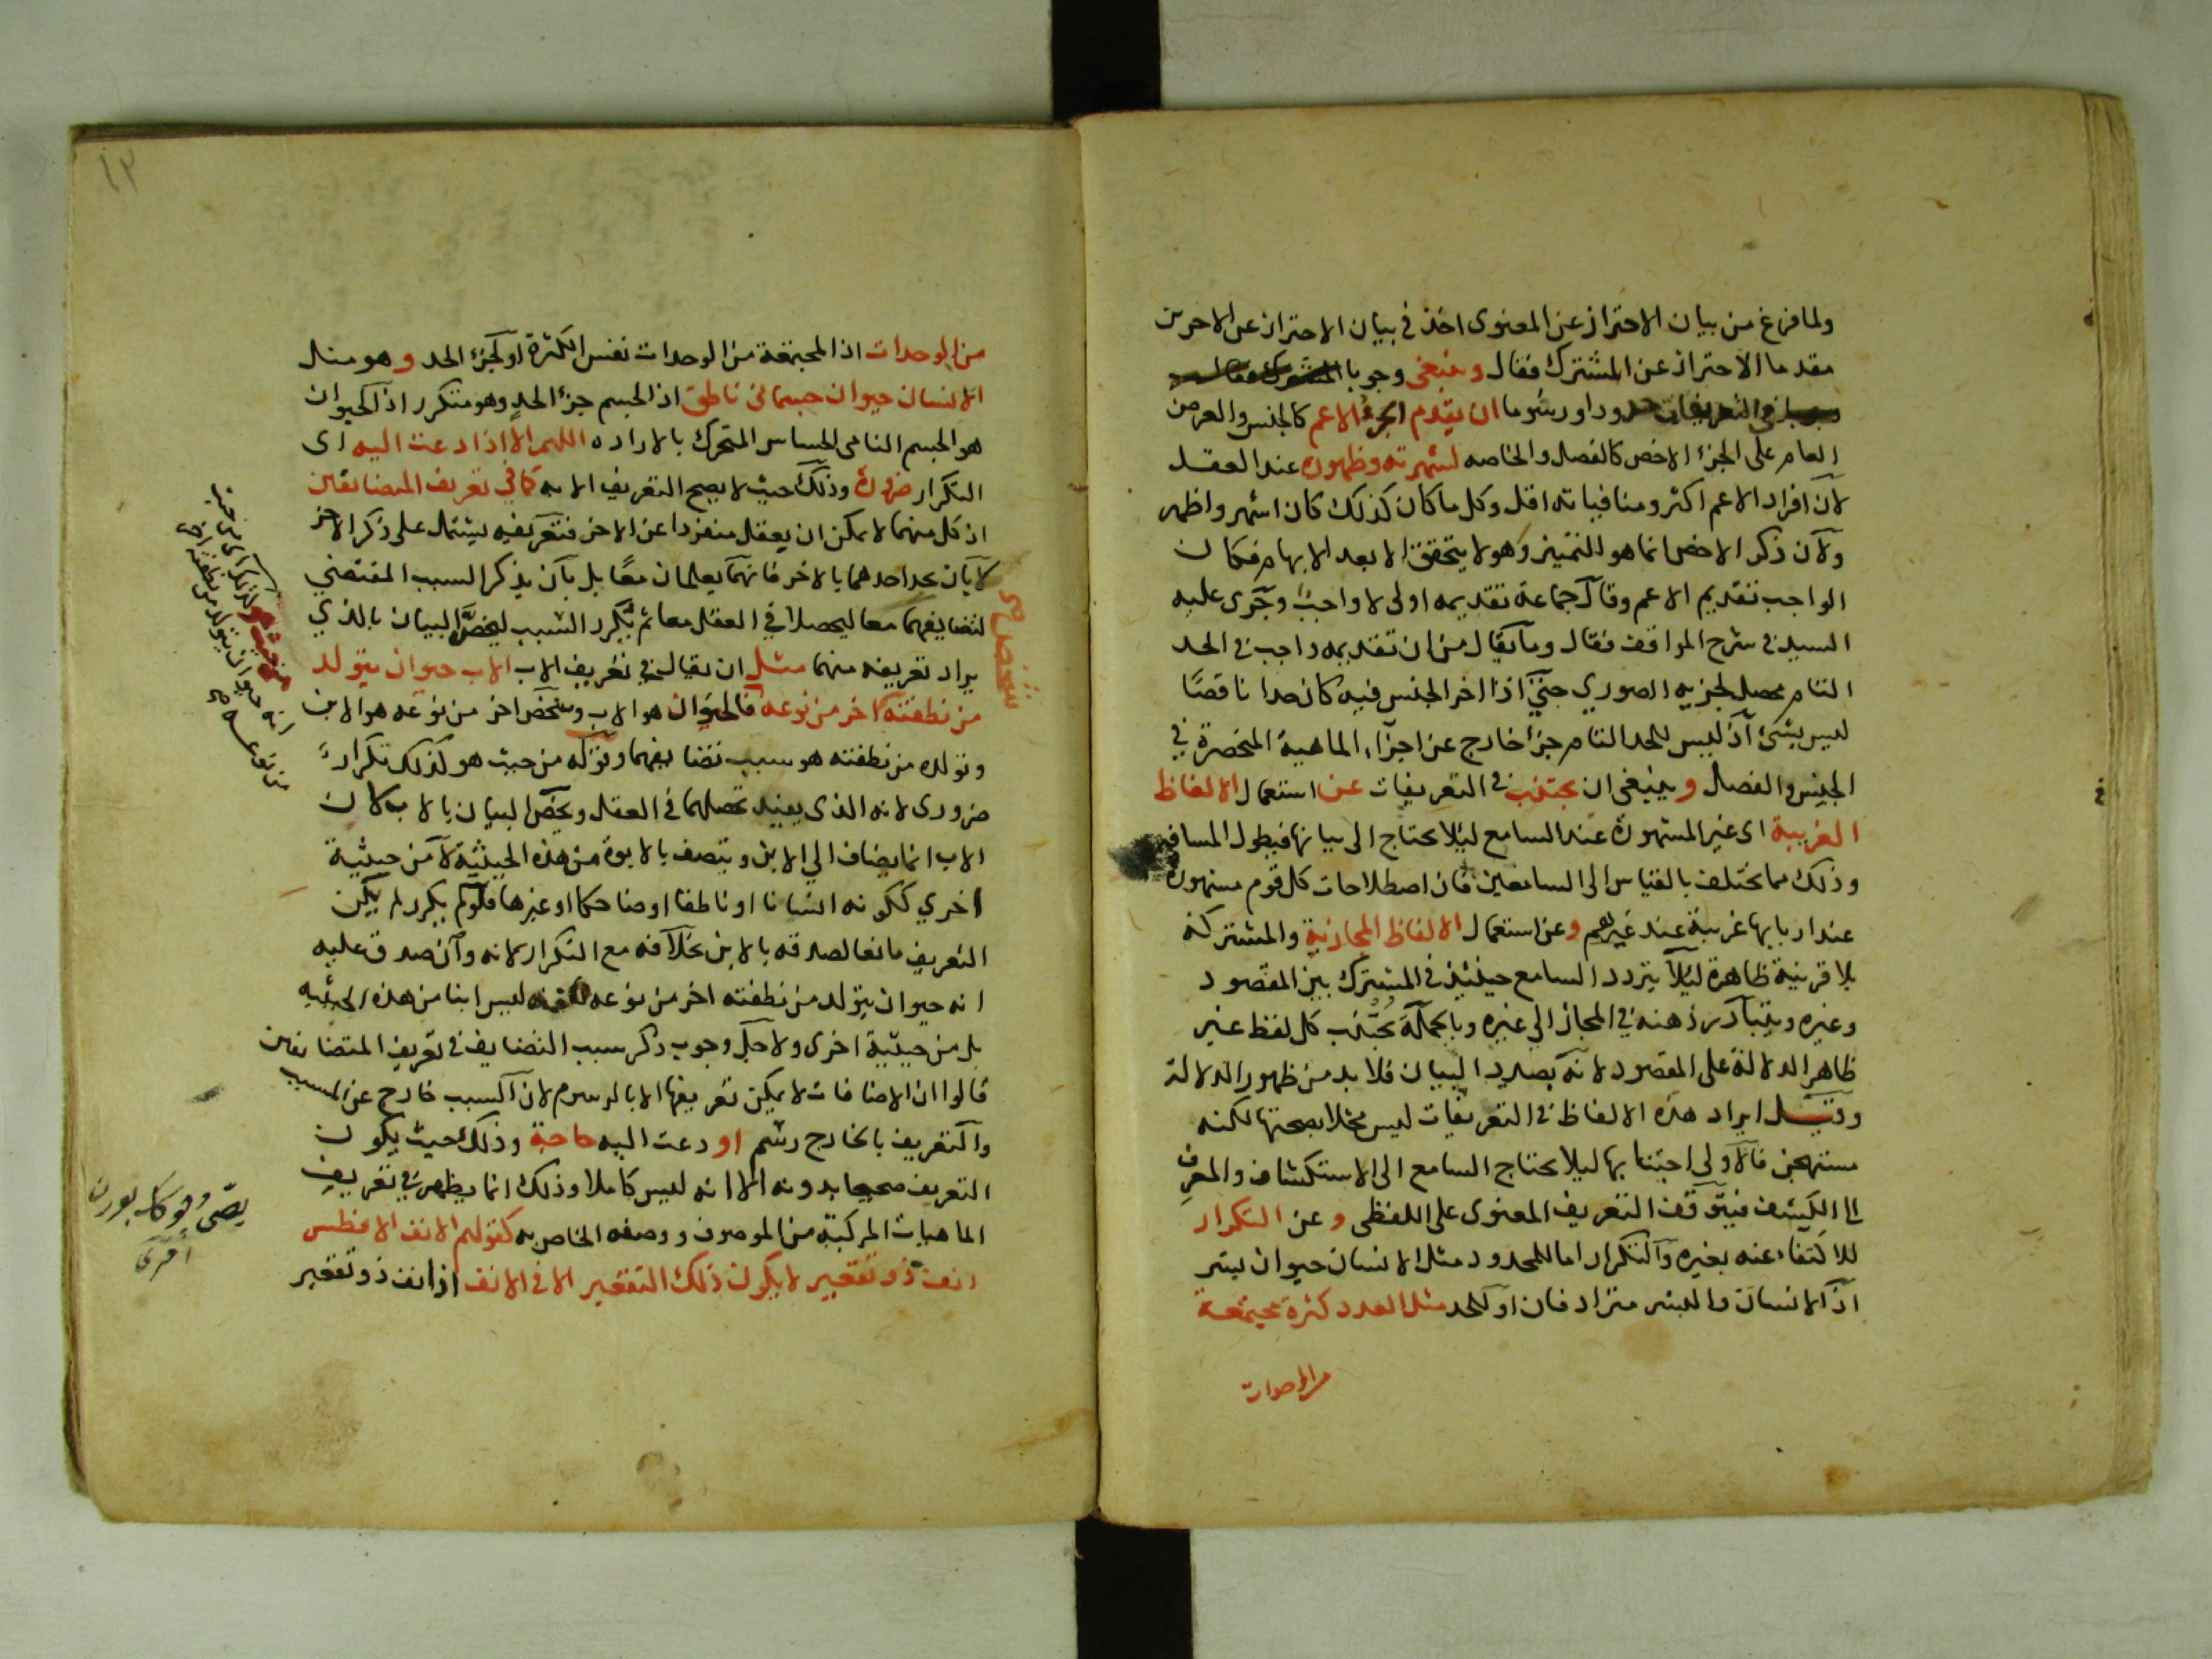 ولما فرغ من بيان الاحتراز عن المعنوى اخذ في بيان الاحتراز عن الاخرين
مقدما الاحتراز عن المشترك فقال وينبغى وجوبا
في التعريفات حدودا ورسوما ان يقدم الجزء الاعم كالجنس والعرض
العام على الجزء الاخص كالفصل والخاصه لشهرته وظهوره عند العقل
لان افراد الاعم اكثر ومنافياته اقل وكل ما كان كذلك كان اشهر واظهر
ولان ذكر الاخص انما هو للتمييز وهو لا يتحقق الا بعد الابهام فكان
الواجب تقديم الاعم وقال جماعة تقديمه اولى لا واجب وجرى عليه
السيد في شرح المواقف فقال وما يقال من ان تقديمه واجب في الحد
التام محصل لجزيه الصوري حتى اذا اخر الجنس فيه كان حدا ناقصا
ليس بشئ اذ ليس للحد التام جزء خارج عن اجزاء الماهية المنحصرة في
الجنس والفصل وينبغى ان يجتنب في التعريفات عن استعمال الالفاظ
الغريبة اى غير المشهورة عند السامع ليلا يحتاج الى بيانها فيطول المسافه
وذلك مما يختلف بالقياس الى السامعين فان اصطلاحات كل قوم مشهورة
عند اربابها غريبة عند غيرهم وعن استعمال الالفاظ المجازية والمشتركة
بلا قرينة ظاهرة ليلا يتردد السامع حينئذ في المشترك بين المقصود
وغيره ويتبادر ذهنه في المجاز الى غيره وبالجملة يجتنب كل لفظ غير
ظاهر الدلالة على المقصود لانه بصدد البيان فلا بد من ظهور الدلالة
وقيل ايراد هذه الالفاظ في التعريفات ليس مخلا بصحتها لكنه
مستهجن فالاولى اجتنابها ليلا يحتاج السامع الى الاستكشاف والمعرف
الى الكشف فيتوقف التعريف المعنوى على اللفظى وعن التكرار
للاكتفاء عنه بغيره والتكرار اما للمحدود مثل الانسان حيوان بشر
اذ الانسان والبشر مترادفان او للحد مثل العدد كثرة مجتمعة
من الوحدات
١٣
من الوحدات اذ المجتمعة من الوحدات نفس الكثرة او لجزء الحد وهو مثل
الانسان حيوان جسمانى ناطق اذ الجسم جزء الحد وهو متكرر اذ الحيوان
هو الجسم النامى الحساس المتحرك بالاراده اللهم الا اذا دعت اليه اى
التكرار ضرورة وذلك حيث لا يصح التعريف الا به كما في تعريف المتضائفين
اذ كل منهما لا يمكن ان يعقل منفردا عن الاخر فتعريفه يشتمل على ذكر الاخر
لا بان يحد احدهما بالاخر فانهما يعلمان معا بل بان يذكر السبب المقتضي
لتضايفهما معا ليحصلا في العقل معا ثم يكرر السبب ليخص البيان بالذي
يراد تعريفه منهما مثل ان يقال في تعريف الاب الاب حيوان يتولد
من نطفته اخر من نوعه فالحيوان هو الاب وشخص اخر من نوعه هو الابن
وتولده من نطفته هو سبب تضايفهما وقوله من حيث هو كذلك تكرار
ضرورى لانه الذى يفيد تحصلهما في العقل ويخص البيان بالاب كان
الاب انما يضاف الى الابن ويتصف بالابوة من هذه الحيثية لا من حيثية
اخري ككونه انسانا او ناطقا او ضاحكا او غيرها فلو لم يكرر لم يكن
التعريف مانعا لصدقه بالابن بخلافه مع التكرار لانه وان صدق عليه
انه حيوان يتولد من نطفته اخر من نوعه ليس ابنا من هذه الحيثيه
بل من حيثية اخرى ولاجل وجوب ذكر سبب التضايف في تعريف المتضايفين
قالوا ان الاضافات لا يمكن تعريفها الا بالرسوم لان السبب خارج عن المسبب
والتعريف بالخارج رسم او دعت اليه حاجة وذلك حيث يكون
التعريف صحيحا بدونه الا انه ليس كاملا وذلك انما يظهر في تعريف
الماهيات المركبة من الموصوف ووصفه الخاص به كقولهم الانف الافطس
انف ذو تقعير لا يكون ذلك التقعير الا في الانف اذ انف ذو تقعير
شخص صح
من نوعه صح